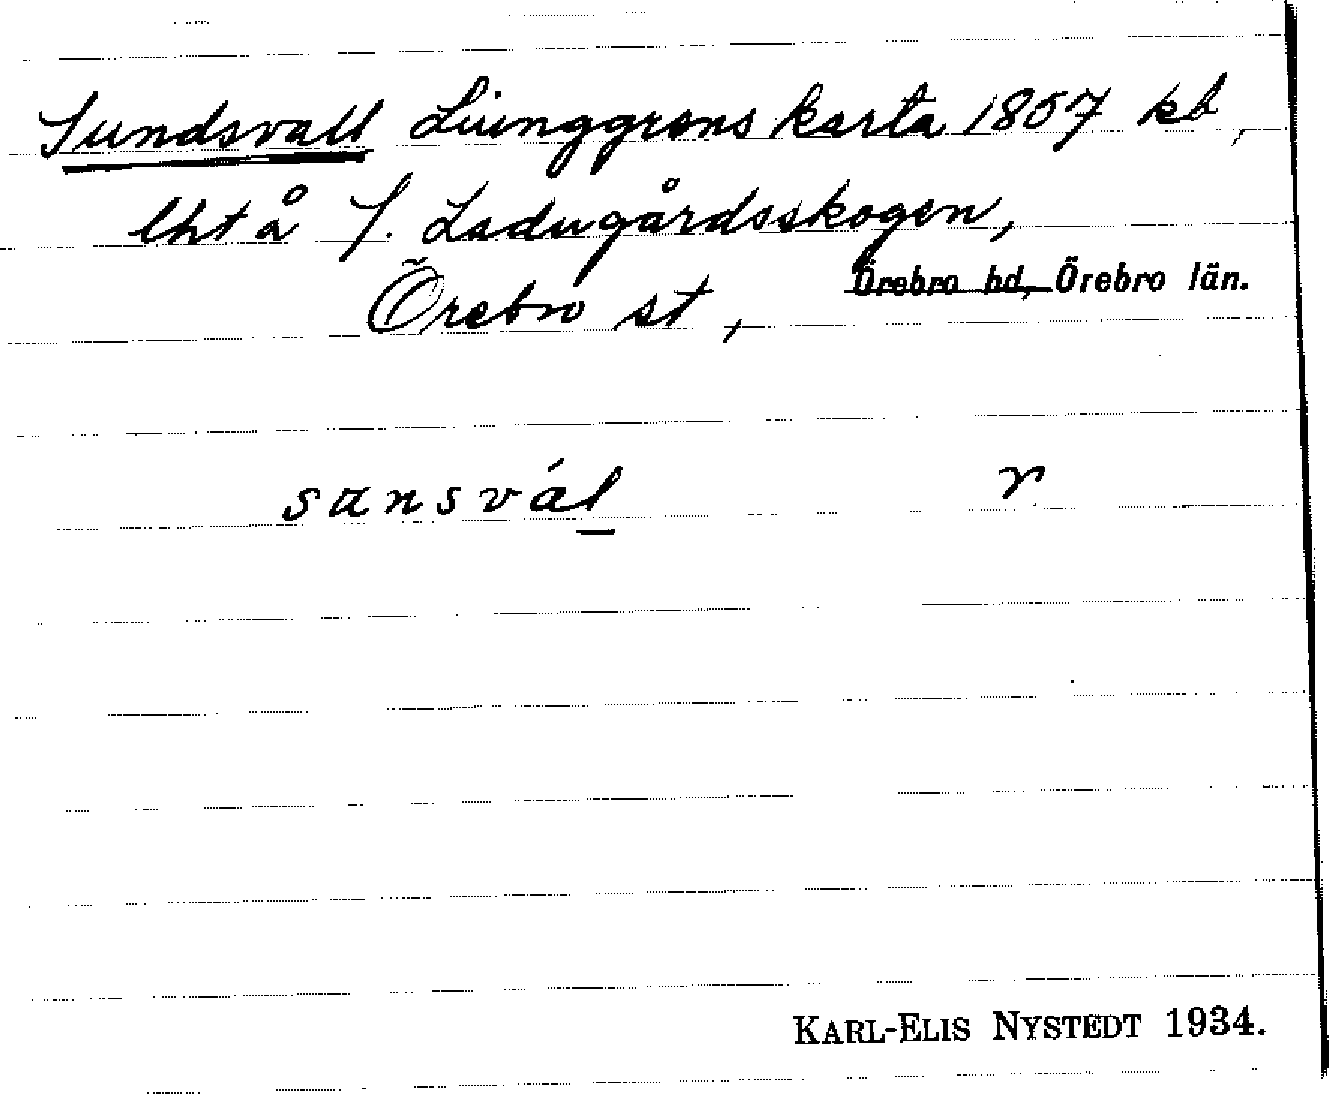 Sundsvall Liunggrens karta 1857 kb,
lht å S. Ladugårdsskogen,
Örebro st, Örebro hd, Örebro län.
sunsvál r
KARL-ELIS NYSTEDT 1934.